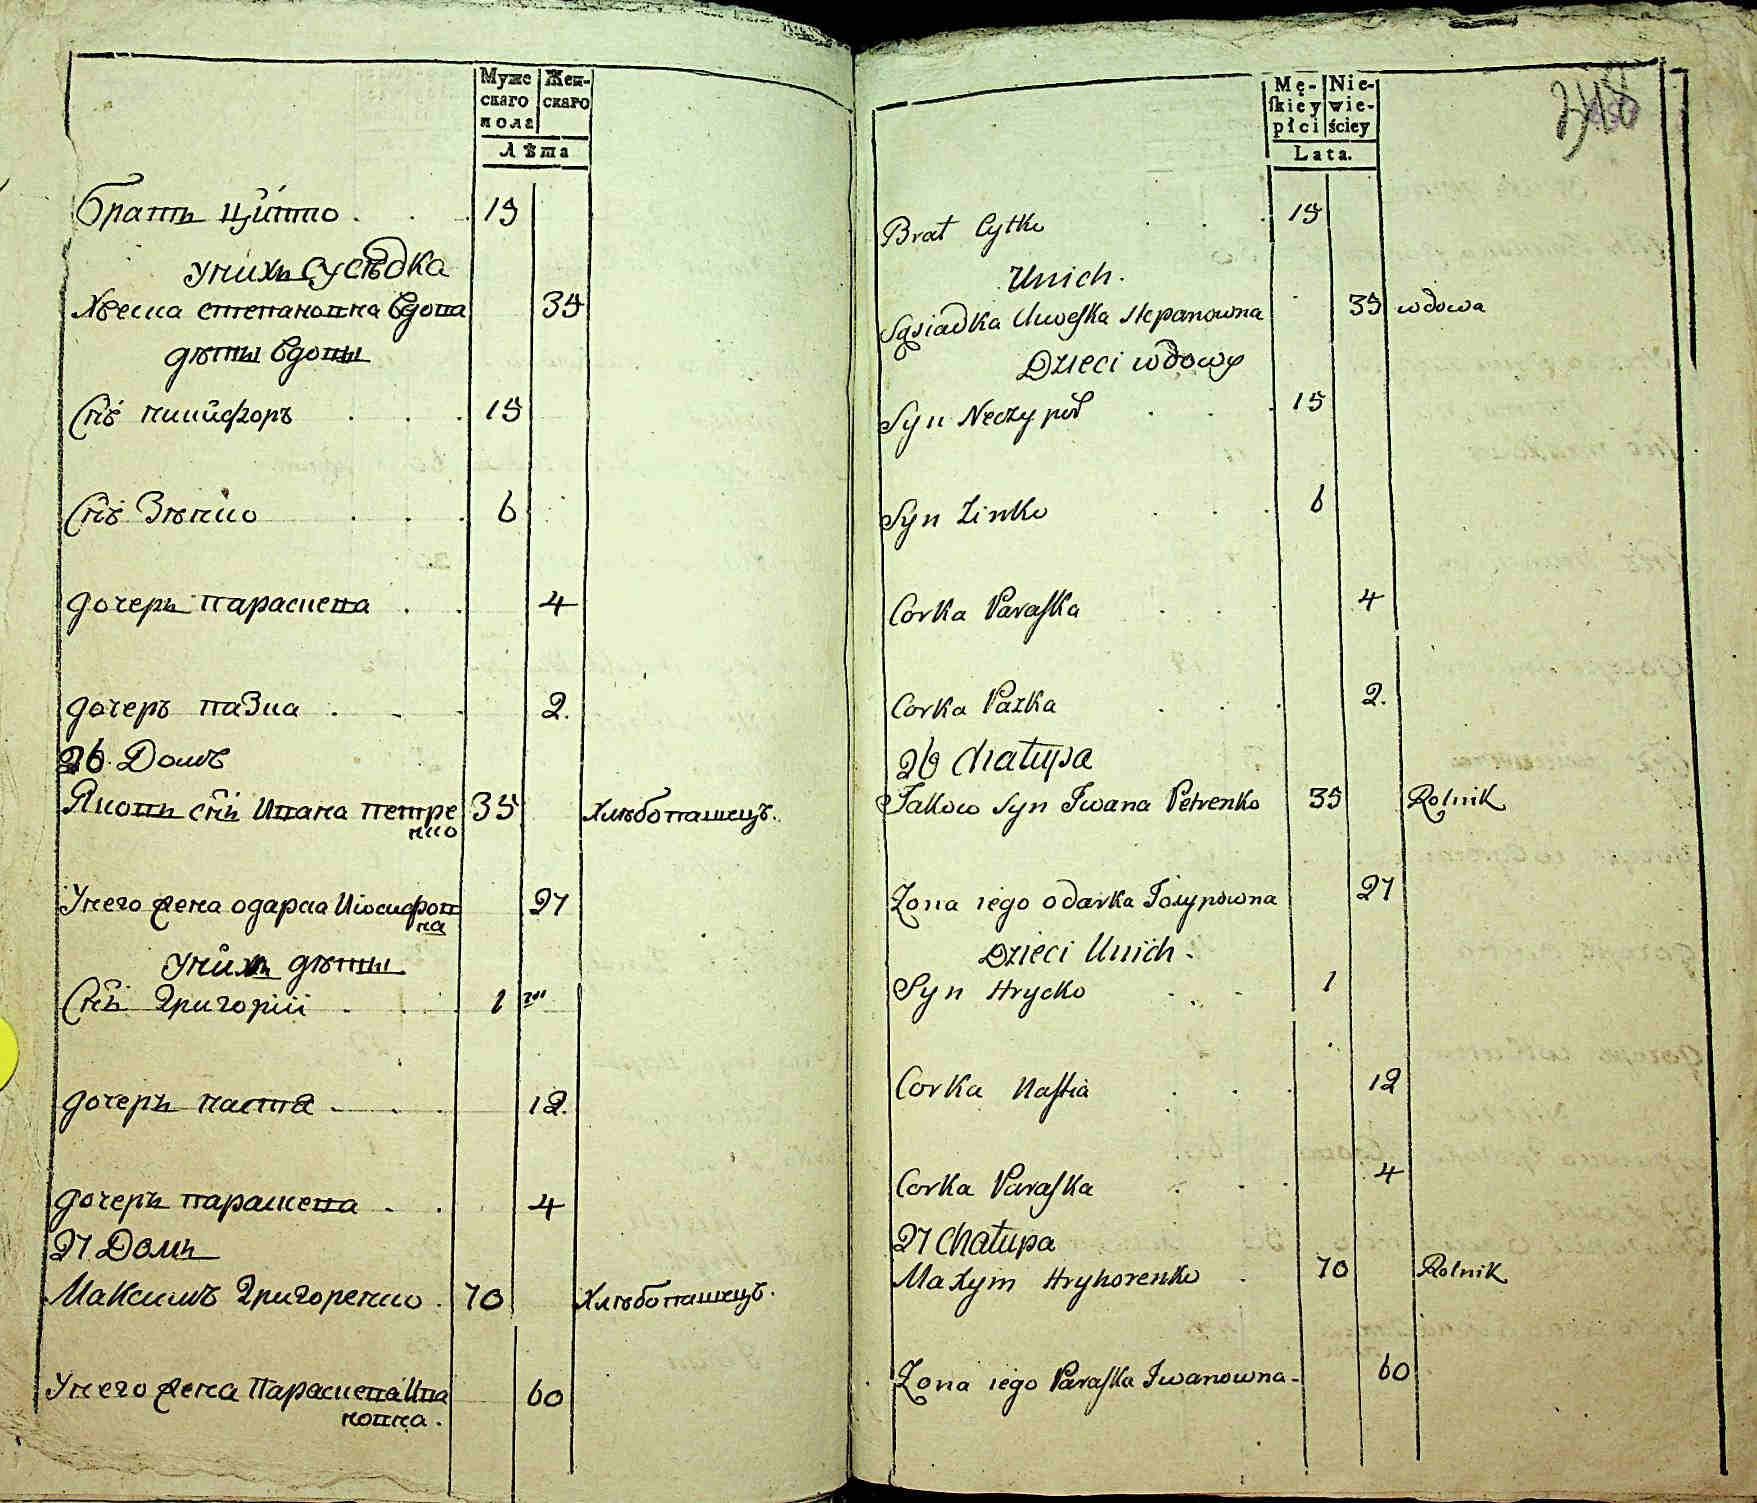 Муже Жен-
скаго скаго
пола
Лѣта
братъ Цитко 15
Унихъ Сусѣдка
Хвеска степановна вдова 35
дѣти вдовы
Сн҃ъ никифоръ 15
Сн҃ъ Зѣнко 6
дочерь параскева 4
дочеръ пазка 2.
26. Домъ
Яковъ сн҃ъ Ивана петре 35 Хлѣбопашецъ.
нко
Унего жена одарка Иосифов 27
на
Унихъ дѣти
Сн҃ъ Григорій 1
дочеръ настя 12.
дочеръ параскева 4
27 Домъ
Максимъ Григоренко 70 Хлѣбопашецъ.
Унего жена Параскева Ива 60
новна.
Mę- Nie-
skiey wie-
płci ściey
Lata.
Brat Cytko 15
Unich.
Sąsiadka Chweska Stepanowna 35 wdowa
Dzieci wdowy
Syn Neczypor 15
Syn Zinko 6
Corka Paraska 4
Corka Pazka 2.
26 Chałupa
Jakow Syn Iwana Petrenko 35 Rolnik
Zona iego odarka Iosypowna 27
Dzieci Unich.
Syn Hrycko 1
Corka Nastia 12
Corka Paraska 4
27 Chałupa
Maxym Hryhorenko 70 Rolnik
Zona iego Paraska Iwanowna 60